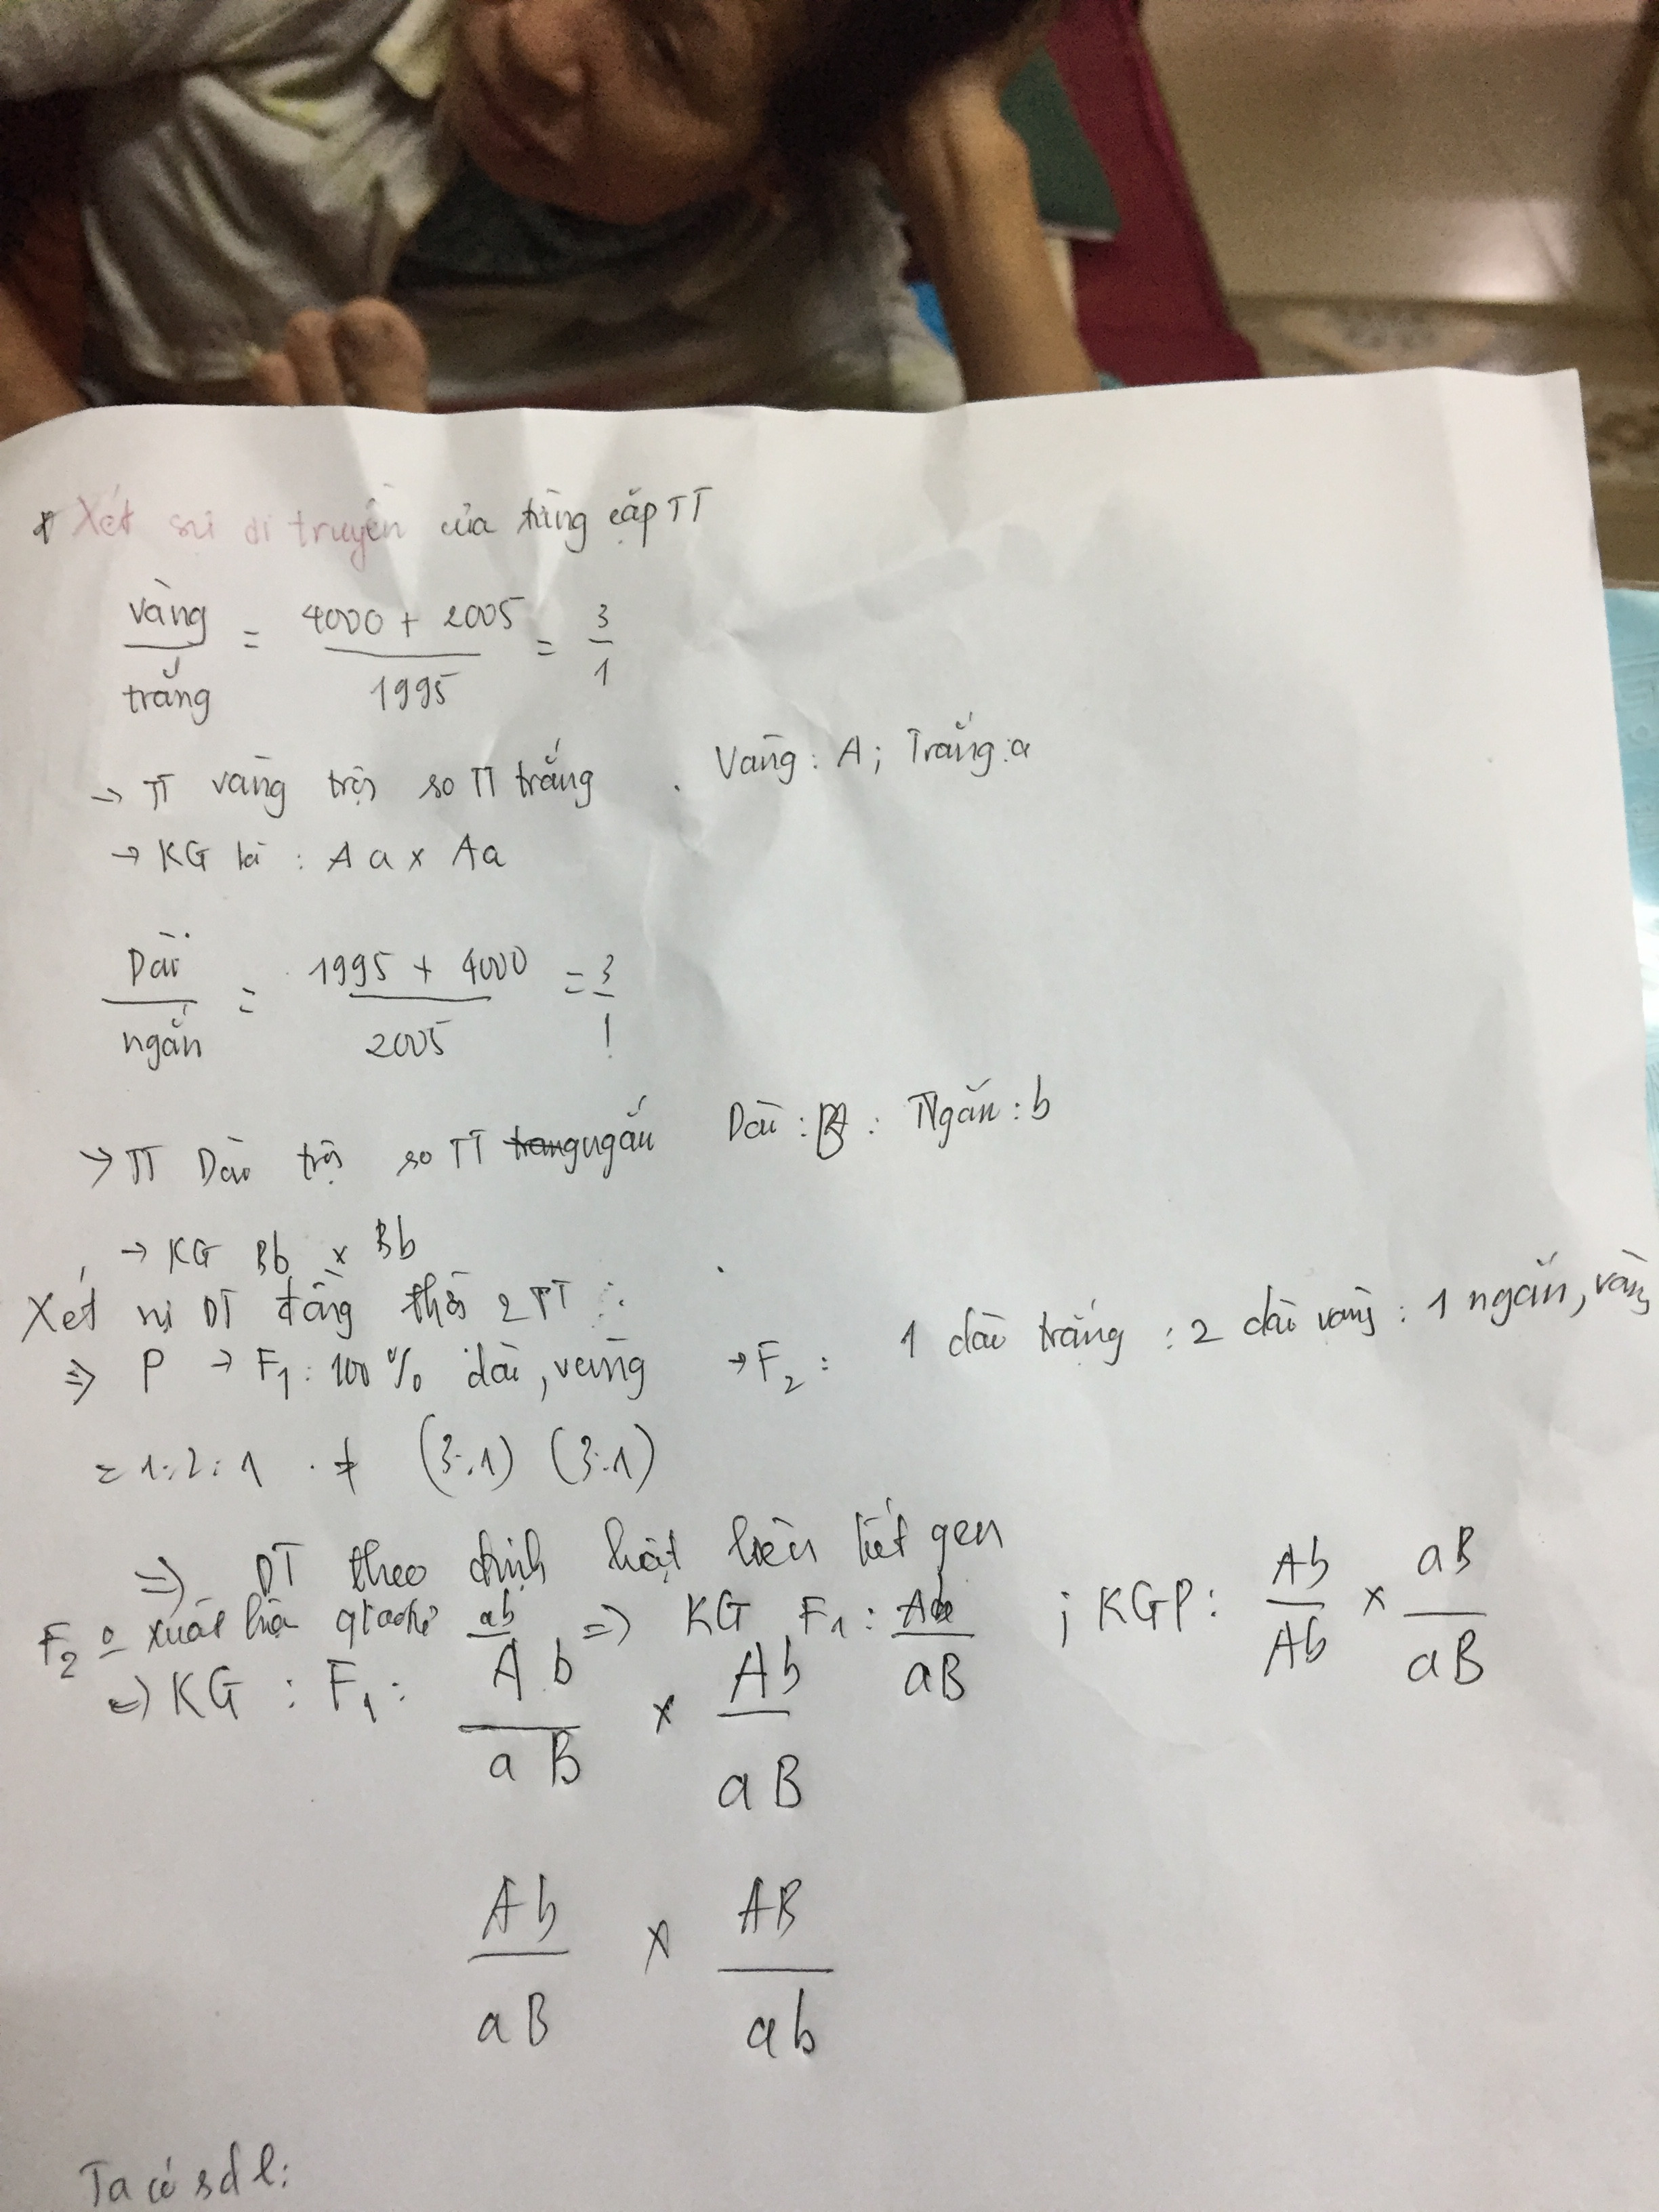 * Xét sự di truyền của từng cặp TT
vàng / trắng = 4000 + 2005 / 1995 = 3 / 1
→ TT vàng trội so TT trắng . Vàng : A ; Trắng : a
→ KG là : Aa x Aa
Dài / ngắn = 1995 + 4000 / 2005 = 3 / 1
→ TT Dài trội so TT ngắn Dài : B : Ngắn : b
→ KG Bb x Bb
Xét sự DT đồng thời 2 TT :
⇒ P → F1 : 100% dài, vàng → F2 : 1 dài trắng : 2 dài vàng : 1 ngắn, vàng
= 1:2:1 ≠ (3:1) (3:1)
⇒ DT theo định luật liên kết gen
F2 o xuất hiện ab ⇒ KG F1 : Ab / aB ; KGP : Ab / Ab x aB / aB
⇒ KG : F1 : Ab / aB x Ab / aB
Ab / aB x AB / ab
Ta có sđl :